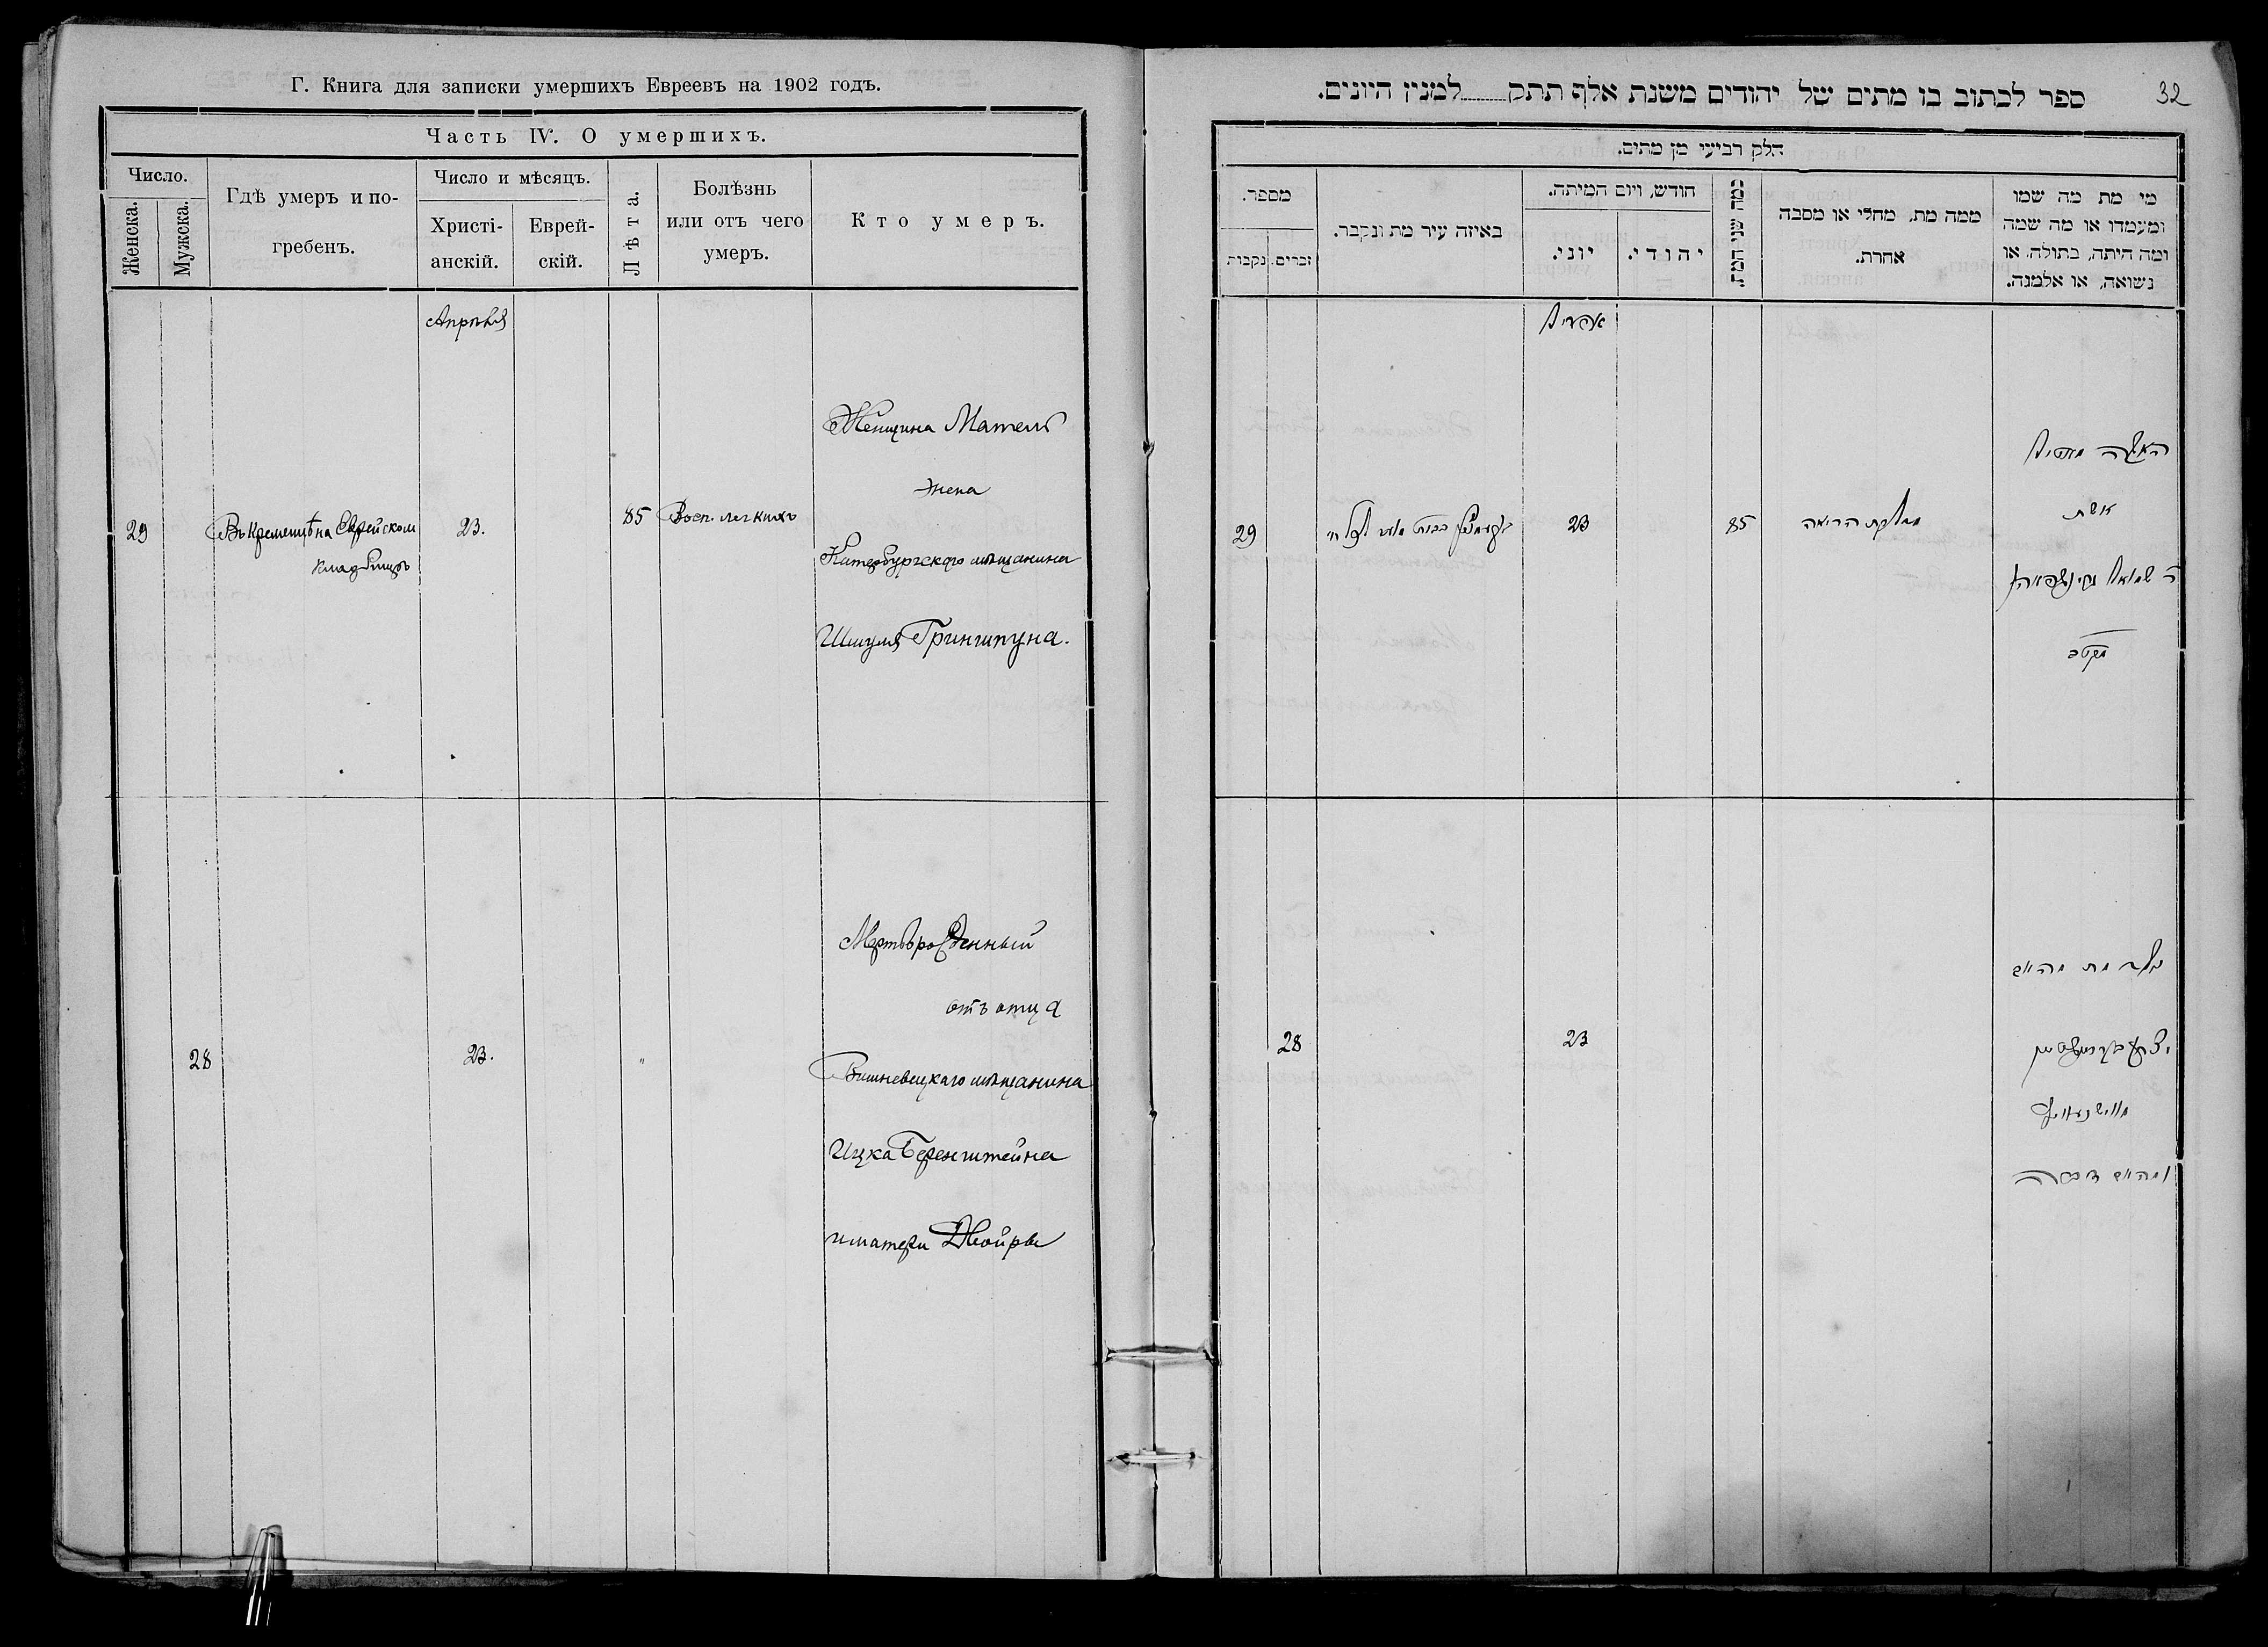 Г. Книга для записки умершихъ Евреевъ на 1902 годъ.
Часть IV. О умершихъ.
Число.
Женска.
Мужска.
Гдѣ умеръ и по-
гребенъ.
Число и мѣсяцъ.
Христі-
анскій.
Еврей-
скій.
Лѣта.
Болѣзнь
или отъ чего
умеръ.
Кто умеръ.
Апрѣля
29
Въ Кременцѣ на Еврейском
кладбищѣ
23.
85
Восп. легкихъ
Женщина Матель
жена
мѣщанина
Шмуля Гриншпуна.
28
23.
"
Мертворожденный
отъ отца
Вишневецкаго мѣщанина
Ицка Беренштейна
и матери Двойры
32
ספר לכתוב בו מתים של יהודים משנת אלף תתק למנין היונים.
חלק רביעי מן מתים.
מספר.
נקבות
זכרים.
באיזה עיר מת ונקבר.
חודש, ויום המיתה.
יוני.
יהודי.
כמה שני המת.
ממה מת, מחלי או מסבה
אחרת.
מי מת מה שמו
ומעמדו או מה שמה
ומה היתה, בתולה, או
נשואה, או אלמנה.
אפריל
29
23
85
מדלקת הריאה
האשה מאטיל
אשת
ר שמואל גרינשפאהן
28
23
נולד מת מהאיש
יצחק בערענשטיין
מווישנעוויץ
ומהאשה דבורה